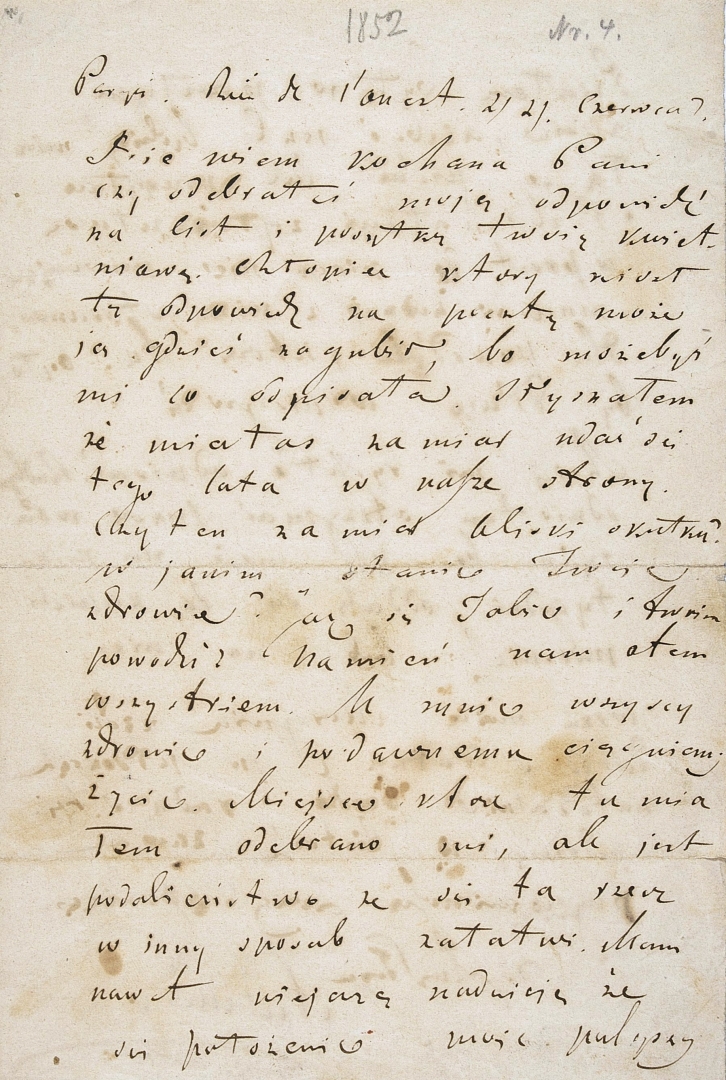 1852 Nr. 4.
Paryż. Rue de l'ouest. 21 Czerwca
Nie wiem kochana Pani
czy odebrałaś moją odpowiedź
na list i posyłkę twoię kwiet-
niową. Chłopiec ktory niosł
tę odpowiedz na pocztę może
ją gdzieś zagubił, bo możebyś
mi co odpisała. Słyszałem
że miałas zamiar udać się
tego lata w nasze strony.
Czy ten zamiar bliski skutku?
w jakim stanie Twoie
zdrowie? Jak się Tobie i twoim
powodzi? Namień nam otem
wszystkiem. U mnie wszyscy
zdrowie i podawnemu ciągniemy
życie. Miejsce ktore tu mia
łem odebrano mi, ale jest
podobieństwo ze się ta rzecz
w inny sposob załatwi. Mam
nawet niejaką nadzieię że
się położenie moie polepszy